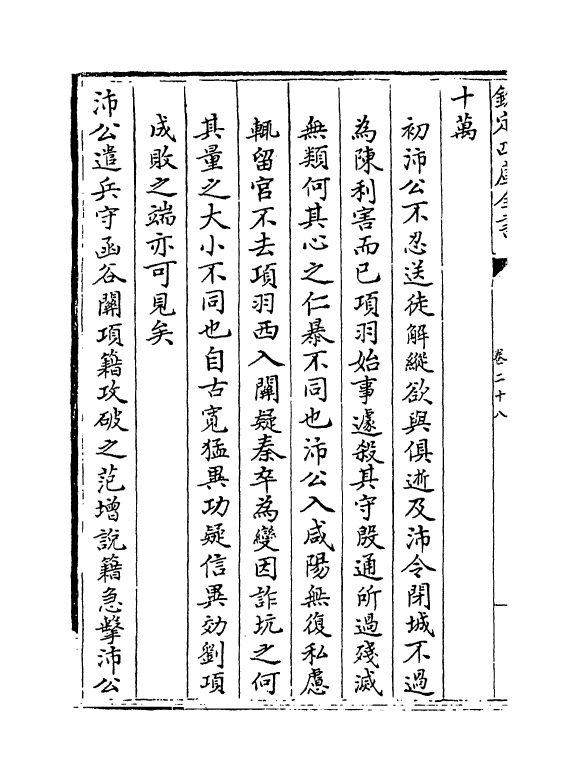 欽定四庫全書
卷二十八
十萬
初沛公不忍送徒解縱欲與俱逝及沛令閉城不過
為陳利害而已項羽始事遽殺其守殷通所過殘滅
無類何其心之仁暴不同也沛公入咸陽無復私慮
輒留官不去項羽西入關疑秦卒為變因詐坑之何
其量之大小不同也自古寬猛異功疑信異効劉項
成敗之端亦可見矣
沛公遣兵守函谷關項籍攻破之范增說籍急擊沛公